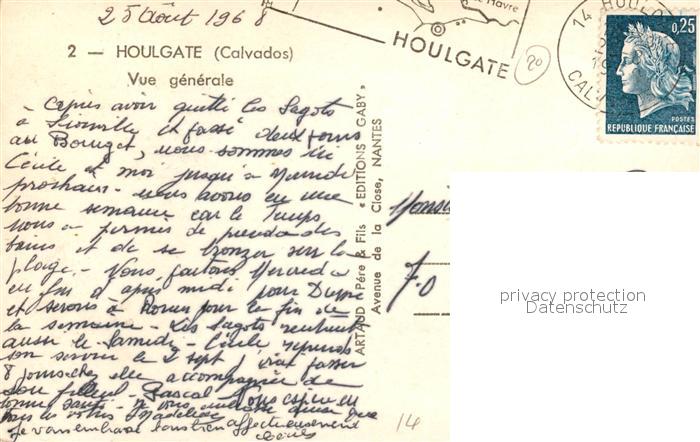 25 Août 1968
2 — HOULGATE (Calvados)
Vue générale
HOULGATE
20
14 HOULG
CAL
0,25
POSTES
REPUBLIQUE FRANÇAISE
- Après avoir quitté les Sagots
à et passé deux jours
au Bourget, nous sommes ici
Cécile et moi jusqu'à
prochain - nous avons eu une
bonne semaine car le temps
nous a permis de prendre des
bains et de se bronzer sur la
plage. - Nous partons
en fin d'après midi pour
et serons à Rouen pour la fin de
la semaine - Les Sagots rentrent
aussi le Samedi - Cécile reprend
son service le 2 sept, irai passer
8 jours chez elle accompagnée de
son filleul - Pascal - Nous espérons
bonne santé -
tous
Je vous embrasse tous bien affectueusement
Cécile
ARTAUD Père & Fils « EDITIONS GABY »
Avenue de la Close, NANTES
70
privacy protection
Datenschutz
14